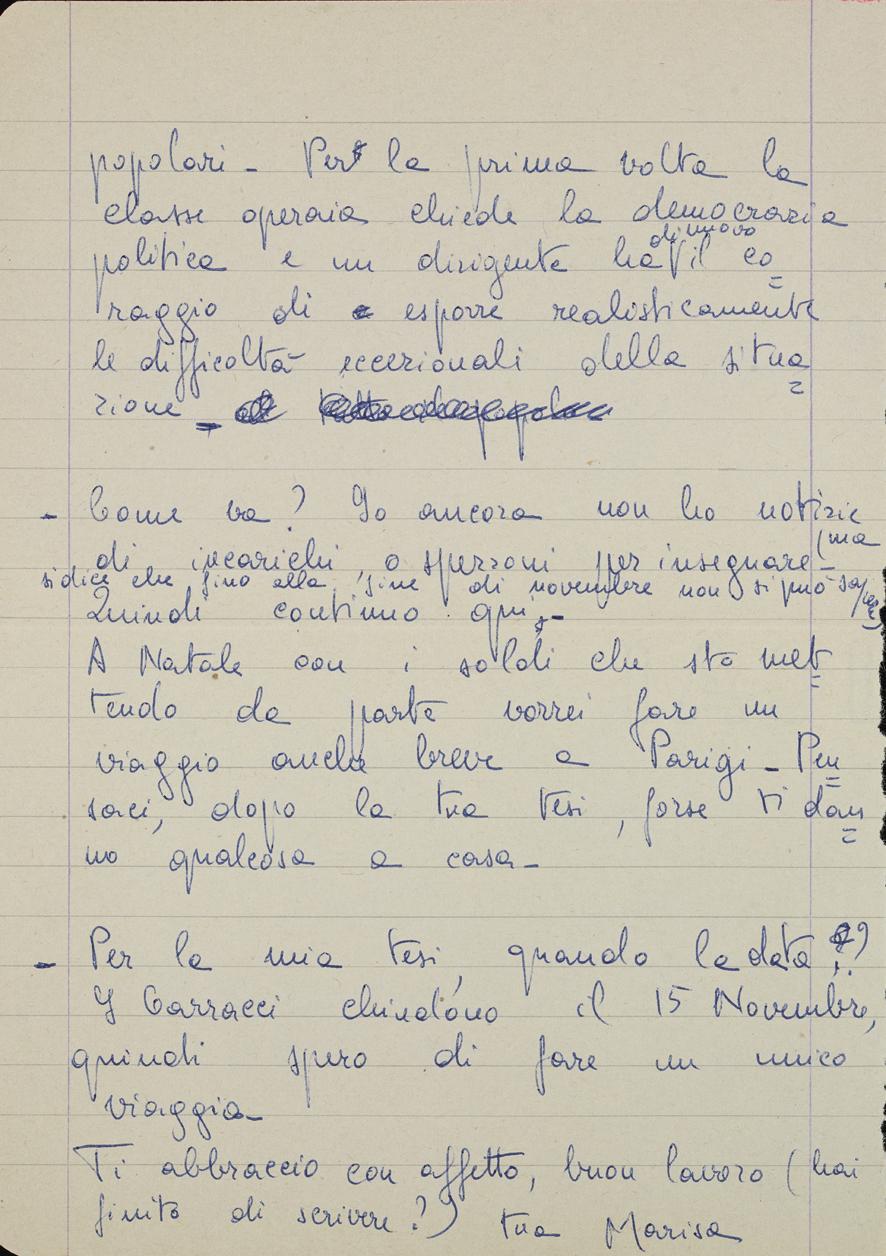 popolari - Per la prima volta la
classe operaia chiede la democrazia
di nuovo
politica e un dirigente ha il co=
raggio di esporre realisticamente
le difficoltà eccezionali della situa=
zione -
- Come va? Io ancora non ho notizie
di incarichi, o spezzoni per insegnare - (ma
si dice che fino alla fine di novembre non si può sapere)
Quindi continuo qui -
A Natale con i soldi che sto met=
tendo da parte vorrei fare un
viaggio anche breve a Parigi - Pen=
saci, dopo la tua tesi, forse ti dan=
no qualcosa a casa -
- Per la mia tesi, quando la data ??
I Carracci chiudono il 15 Novembre,
quindi spero di fare un unico
viaggio -
Ti abbraccio con affetto, buon lavoro (hai
finito di scrivere?) tua Marisa